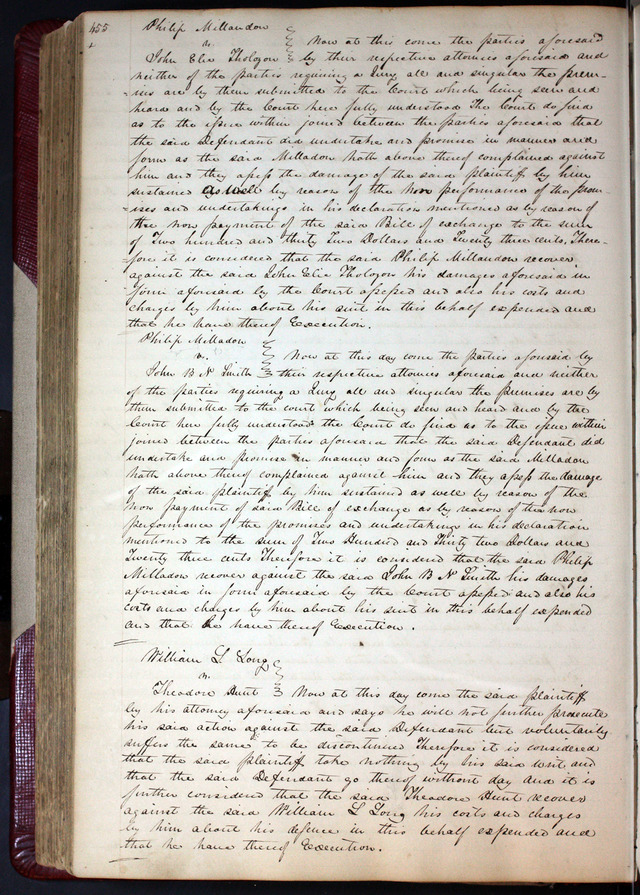 455
Philip Milladon
v. Now at this come the parties aforesaid
John Elie Thologon by their respective attornies aforesaid and
neither of the parties requiring a Jury all and singular the prem-
-ises are by them submitted to the Court which being seen and
heard and by the Court here fully understood The Court do find
as to the issue within joined between the parties aforesaid that
the said Defendant did undertake and promise in manner and
form as the said Milladon hath above thereof complained against
him and they assess the damage of the said plaintiff by him
sustained as well by reason of the Non performance of the prom-
-ises and undertakings in his declaration mentioned as by reason of
the non payment of the said Bill of exchange to the sum
of Two hundred and thirty Two Dollars and Twenty three cents, There-
-fore it is considered that the said Philip Milladon recover
against the said John Elie Thologon his damages aforesaid in
form aforesaid by the Court assessed and also his costs and
charges by him about his suit in this behalf expended and
that he have thereof Execution.
Philip Milladon
v. Now at this day come the parties aforesaid by
John B N Smith their respective attornies aforesaid and neither
of the parties requiring a Jury all and singular the premises are by
them submitted to the court which being seen and heard and by the
Court here fully understood the Court do find as to the issue within
joined between the parties aforesaid that the said Defendant did
undertake and promise in manner and form as the said Milladon
hath above thereof complained against him and they assess the damage
of the said plaintiff by him sustained as well by reason of the
Non payment of said Bill of exchange as by reason of the non
performance of the promises and undertaking in his declaration
mentioned to the sum of Two Hundred and Thirty two Dollars and
Twenty three cents Therefore it is considered that the said Philip
Milladon recover against the said John B N Smith his damages
aforesaid in form aforesaid by the Court assessed and also his
costs and charges by him about his suit in this behalf expended
and that he have thereof Execution.
William L Long
v.
Theodore Hunt Now at this day come the said plaintiff
by his attorney aforesaid and says he will not further prosecute
his said action against the said Defendant but voluntarily
suffers the same to be discontinued Therefore it is considered
that the said plaintiff take nothing by his said writ and
that the said Defendant go thereof without day and it is
further considered that the said Theodore Hunt recover
against the said William L Long his costs and charges
by him about his defence in this behalf expended and
that he have thereof Execution.